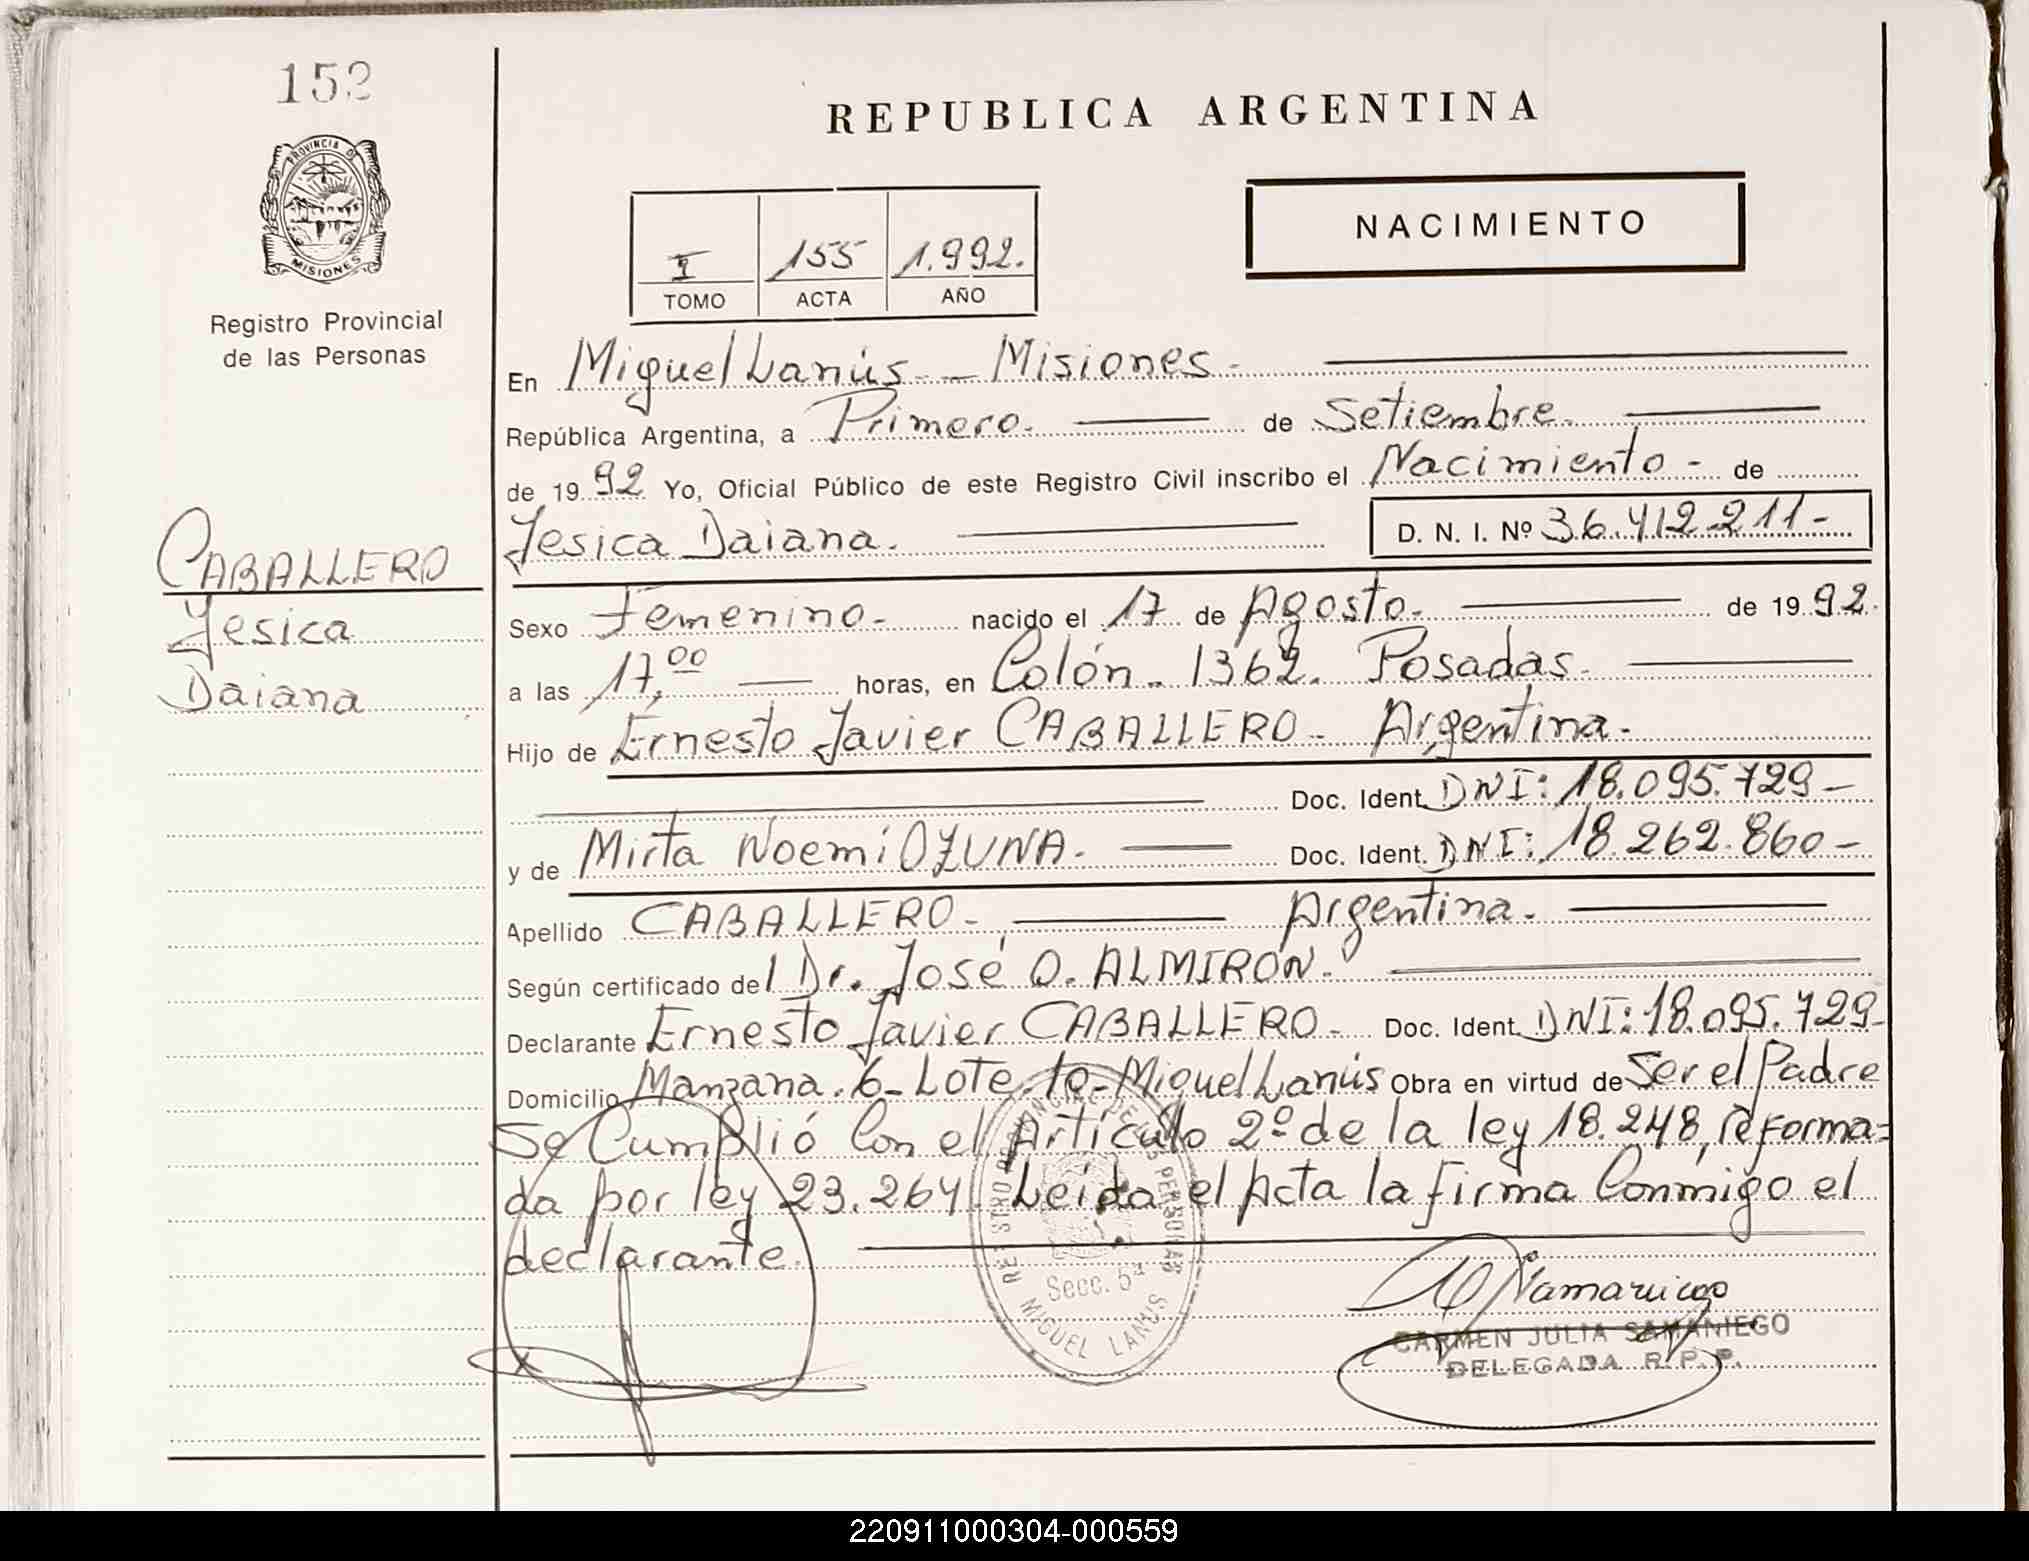 152
REPUBLICA ARGENTINA
PROVINCIA DE
MISIONES
NACIMIENTO
I 155 1.992.
TOMO ACTA AÑO
Registro Provincial
de las Personas
En Miguel Lanús - Misiones -
República Argentina, a Primero. de Setiembre.
de 1992 Yo, Oficial Público de este Registro Civil inscribo el Nacimiento - de
Yesica Daiana. D. N. I. Nº 36.412.211-
CABALLERO
Yesica
Daiana
Sexo Femenino - nacido el 17 de Agosto. de 1992.
a las 17,00 horas, en Colón - 1362. Posadas.
Hijo de Ernesto Javier CABALLERO - Argentina.
Doc. Ident. DNI: 18.095.729-
y de Mirta Noemi OZUNA. Doc. Ident. DNI: 18.262.860-
Apellido CABALLERO - Argentina.
Según certificado del Dr. José O. ALMIRÓN.
Declarante Ernesto Javier CABALLERO - Doc. Ident. DNI: 18.095.729-
Domicilio Manzana. 6- Lote. 10- Miguel Lanús Obra en virtud de Ser el Padre
Se Cumplió Con el Artículo 2º de la ley 18.248, reforma=
da por ley 23.264. Leida el Acta la firma Conmigo el
declarante.
REGISTRO PROVINCIAL DE LAS PERSONAS
Secc. 5ª
MIGUEL LANUS
CARMEN JULIA SAMANIEGO
DELEGADA R. P. P.
220911000304-000559